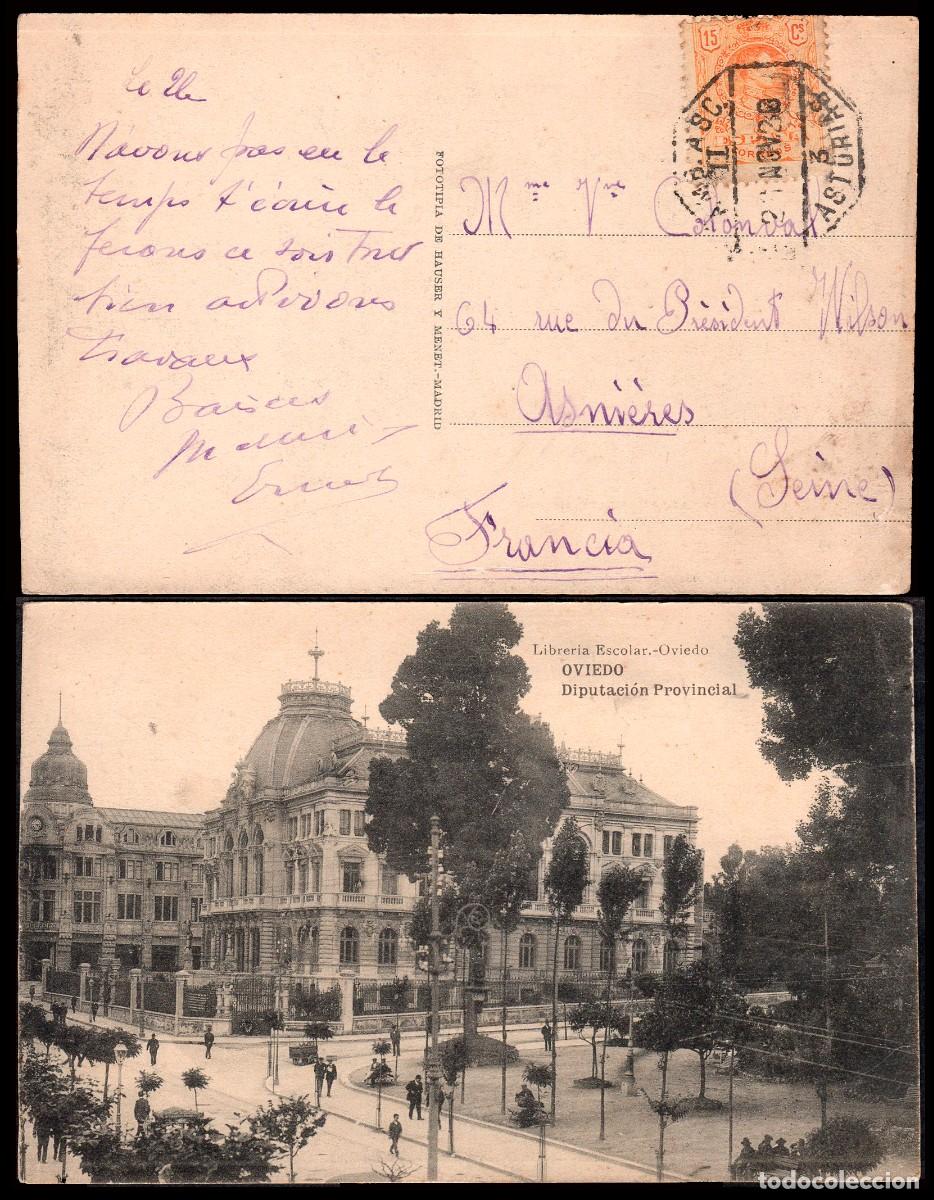 Le 26
N'avons pas eu le
temps t'écrire le
ferons ce soir Tout
bien
travaux
Baisers
Ernest
FOTOTIPIA DE HAUSER Y MENET.-MADRID
15 Cs
AMB. ASC.
11
NOV 20
3
ASTURIAS
Mme Vve Colonval
64 rue du Président Wilson
Asnières
(Seine)
Francia
Libreria Escolar.-Oviedo
OVIEDO
Diputación Provincial
todocoleccion